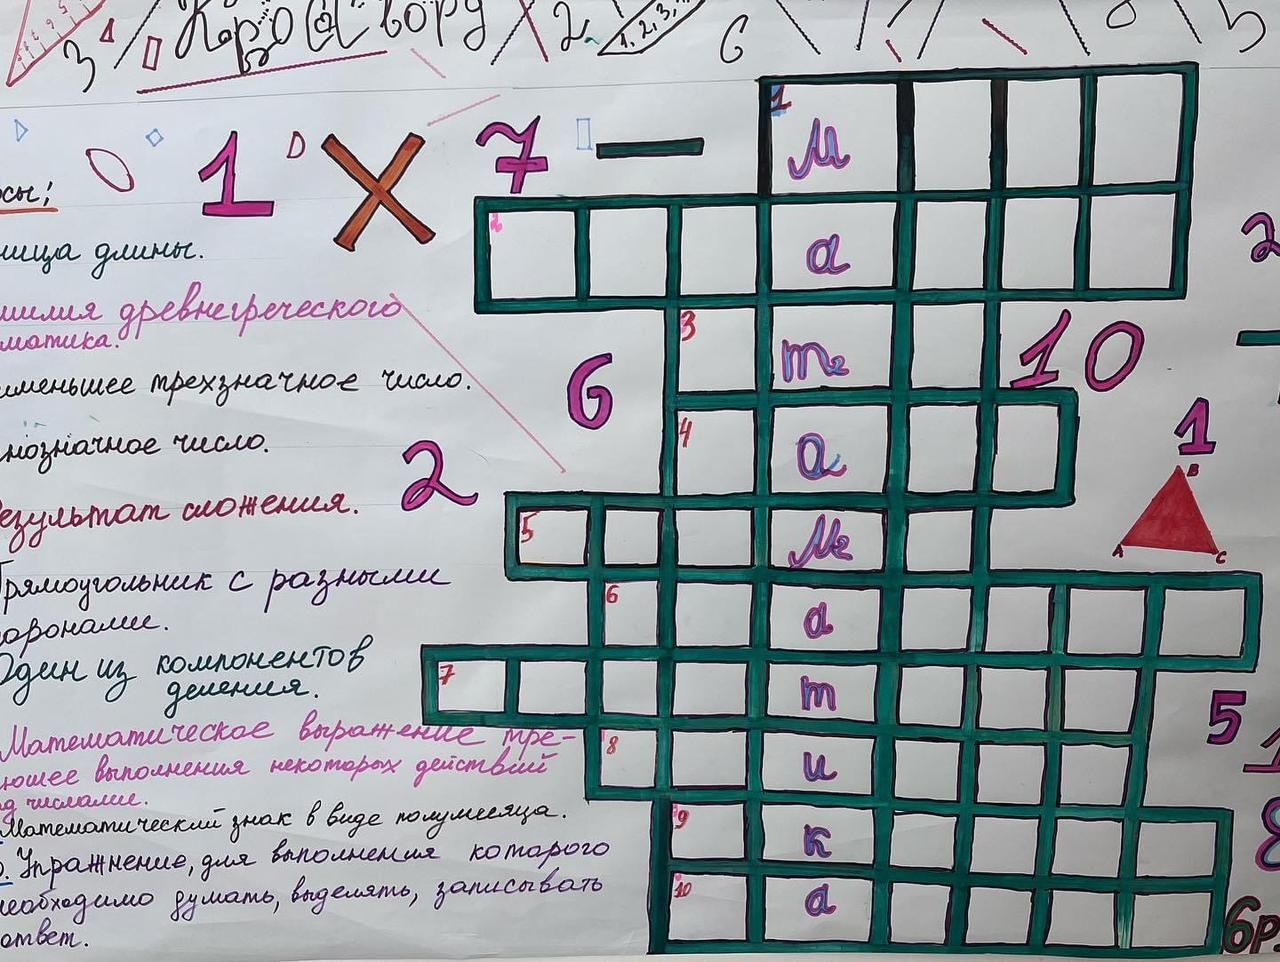 Кроссворд
3 2 1,2,3, 6 5
1 7
сы:
ница длины.
милия древнегреческого
матика.
именьшее трехзначное число.
нозначное число.
езультат сложения.
Прямоугольник с разными
оронами.
Один из компонентов
деления.
Математическое выражение тре-
ющее выполнения некоторых действий
д числами.
Математический знак в виде полумесяца.
0. Упражнение, для выполнения которого
необходимо думать, выделять, записывать
ответ.
1 м
2 а
3 т
4 а
5 м
6 а
7 т
8 и
9 к
10 а
6
2
10
1
B
A C
2
5
1
8
6р.